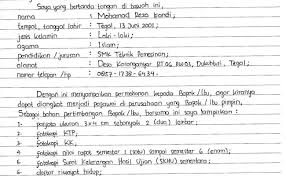 Saya yang bertanda tangan di bawah ini,
nama : Mohamad Reza Rendi,
tempat, tanggal lahir : Tegal, 13 Juni 2001;
jenis kelamin : Laki-laki;
agama : Islam;
pendidikan / jurusan : SMK Teknik Pemesinan;
alamat : Desa Karanganyar RT 06 RW 01, Dukuhturi, Tegal;
nomor telepon / hp : 0857-1738-6434.
Dengan ini menyampaikan permohonan kepada Bapak / Ibu, agar kiranya
dapat diangkat menjadi pegawai di perusahaan yang Bapak / Ibu pimpin.
Sebagai bahan pertimbangan Bapak / Ibu, bersama ini saya lampirkan :
1. pasfoto ukuran 3x4 cm sebanyak 2 (dua) lembar;
2. fotokopi KTP;
3. fotokopi KK;
4. fotokopi nilai rapot semester 1 (satu) sampai semester 6 (enam);
5. fotokopi Surat Keterangan Hasil Ujian (SKHU) sementara;
6. daftar riwayat hidup;